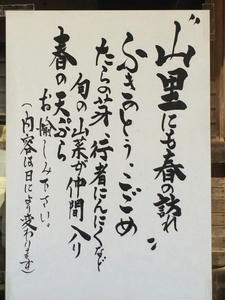 〝山里にも春の訪れ〟
ふきのとう、こごめ
たらの芽、行者にんにくなど
旬の山菜が仲間入り
春の天ぷら
お愉しみ下さい。
(内容は日により変わります)